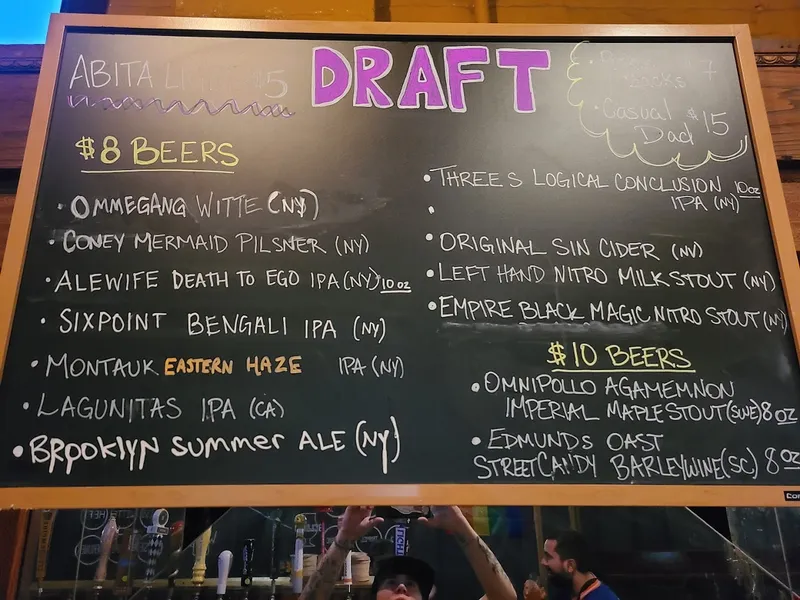 ABITA $5
DRAFT
7
Casual $15
Dad
$8 BEERS
• OMMEGANG WITTE (NY)
• CONEY MERMAID PILSNER (NY)
• ALEWIFE DEATH TO EGO IPA (NY) 10oz
• SIXPOINT BENGALI IPA (NY)
• MONTAUK EASTERN HAZE IPA (NY)
• LAGUNITAS IPA (CA)
• BROOKLYN SUMMER ALE (NY)
• THREES LOGICAL CONCLUSION 10oz
IPA (NY)
•
• ORIGINAL SIN CIDER (NY)
• LEFT HAND NITRO MILK STOUT (NY)
• EMPIRE BLACK MAGIC NITRO STOUT (NY)
$10 BEERS
• OMNIPOLLO AGAMEMNON
IMPERIAL MAPLE STOUT (SWE) 8oz
• EDMUNDS OAST
STREET CANDY BARLEYWINE (SC) 8oz